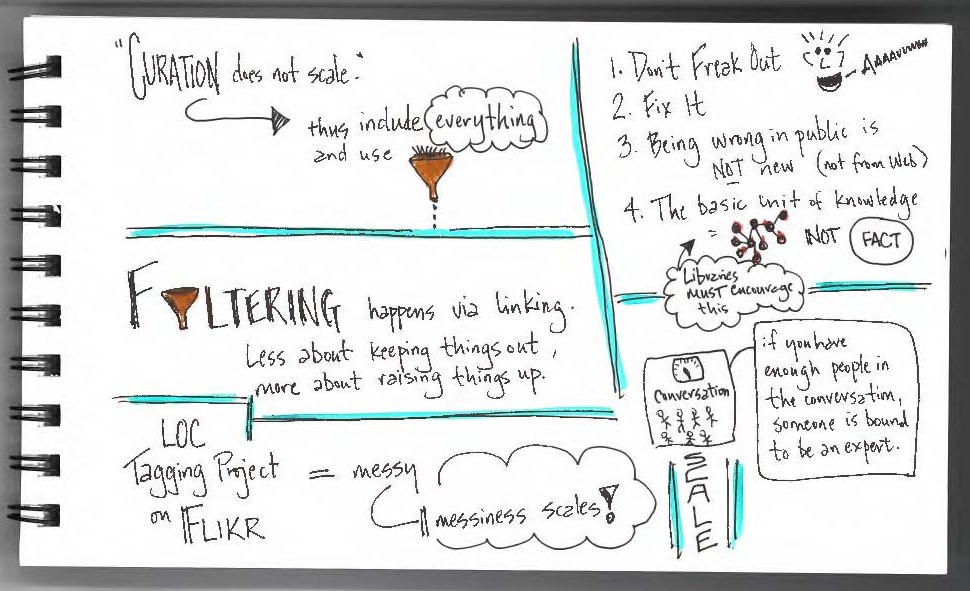 "CURATION does not scale."
thus include everything
and use
FILTERING happens via linking.
Less about keeping things out,
more about raising things up.
LOC
Tagging Project = messy
on FLIKR
messiness scales!
1. Don't Freak Out
AAAAUUWWW
2. Fix It
3. Being wrong in public is
NOT new (not from Web)
4. The basic unit of knowledge
= NOT FACT
Libraries
MUST encourage
this
conversation
SCALE
if you have
enough people in
the conversation,
someone is bound
to be an expert.